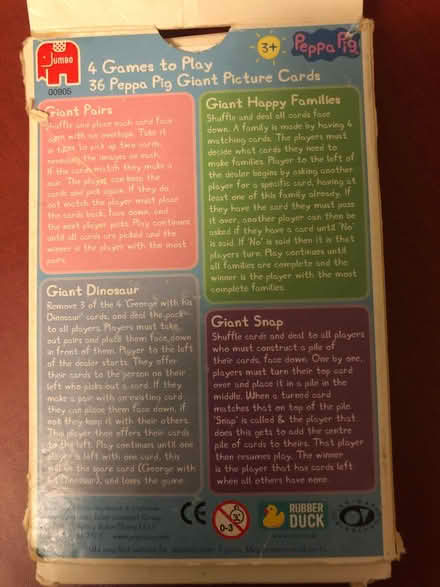 Jumbo
00905
4 Games to Play
36 Peppa Pig Giant Picture Cards
3+
Peppa Pig
Giant Pairs
Shuffle and place each card face
down with no overlaps. Take it
in turns to pick up two cards,
revealing the images on each.
If the cards match they make a
pair. The player can keep the
cards and pick again. If they do
not match the player must place
the cards back, face down, and
the next player picks. Play continues
until all cards are picked and the
winner is the player with the most
pairs.
Giant Happy Families
Shuffle and deal all cards face
down. A family is made by having 4
matching cards. The players must
decide what cards they need to
make families. Player to the left of
the dealer begins by asking another
player for a specific card, having at
least one of this family already. If
they have the card they must pass
it over, another player can then be
asked if they have a card until 'No'
is said. If 'No' is said then it is that
players turn. Play continues until
all families are complete and the
winner is the player with the most
complete families.
Giant Dinosaur
Remove 3 of the 4 'George with his
Dinosaur' cards, and deal the pack
to all players. Players must take
out pairs and place them face down
in front of them. Player to the left
of the dealer starts. They offer
their cards to the person on their
left who picks out a card. If they
make a pair with an existing card
they can place them face down, if
not they keep it with their others.
This player then offers their cards
to the left. Play continues until one
player is left with one card, this
will be the spare card (George with
his Dinosaur), and loses the game
Giant Snap
Shuffle cards and deal to all players
who must construct a pile of
their cards, face down. One by one,
players must turn their top card
over and place it in a pile in the
middle. When a turned card
matches that on top of the pile
'Snap' is called & the player that
does this gets to add the centre
pile of cards to theirs. That player
then resumes play. The winner
is the player that has cards left
when all others have none.
CE
0-3
RUBBER
DUCK